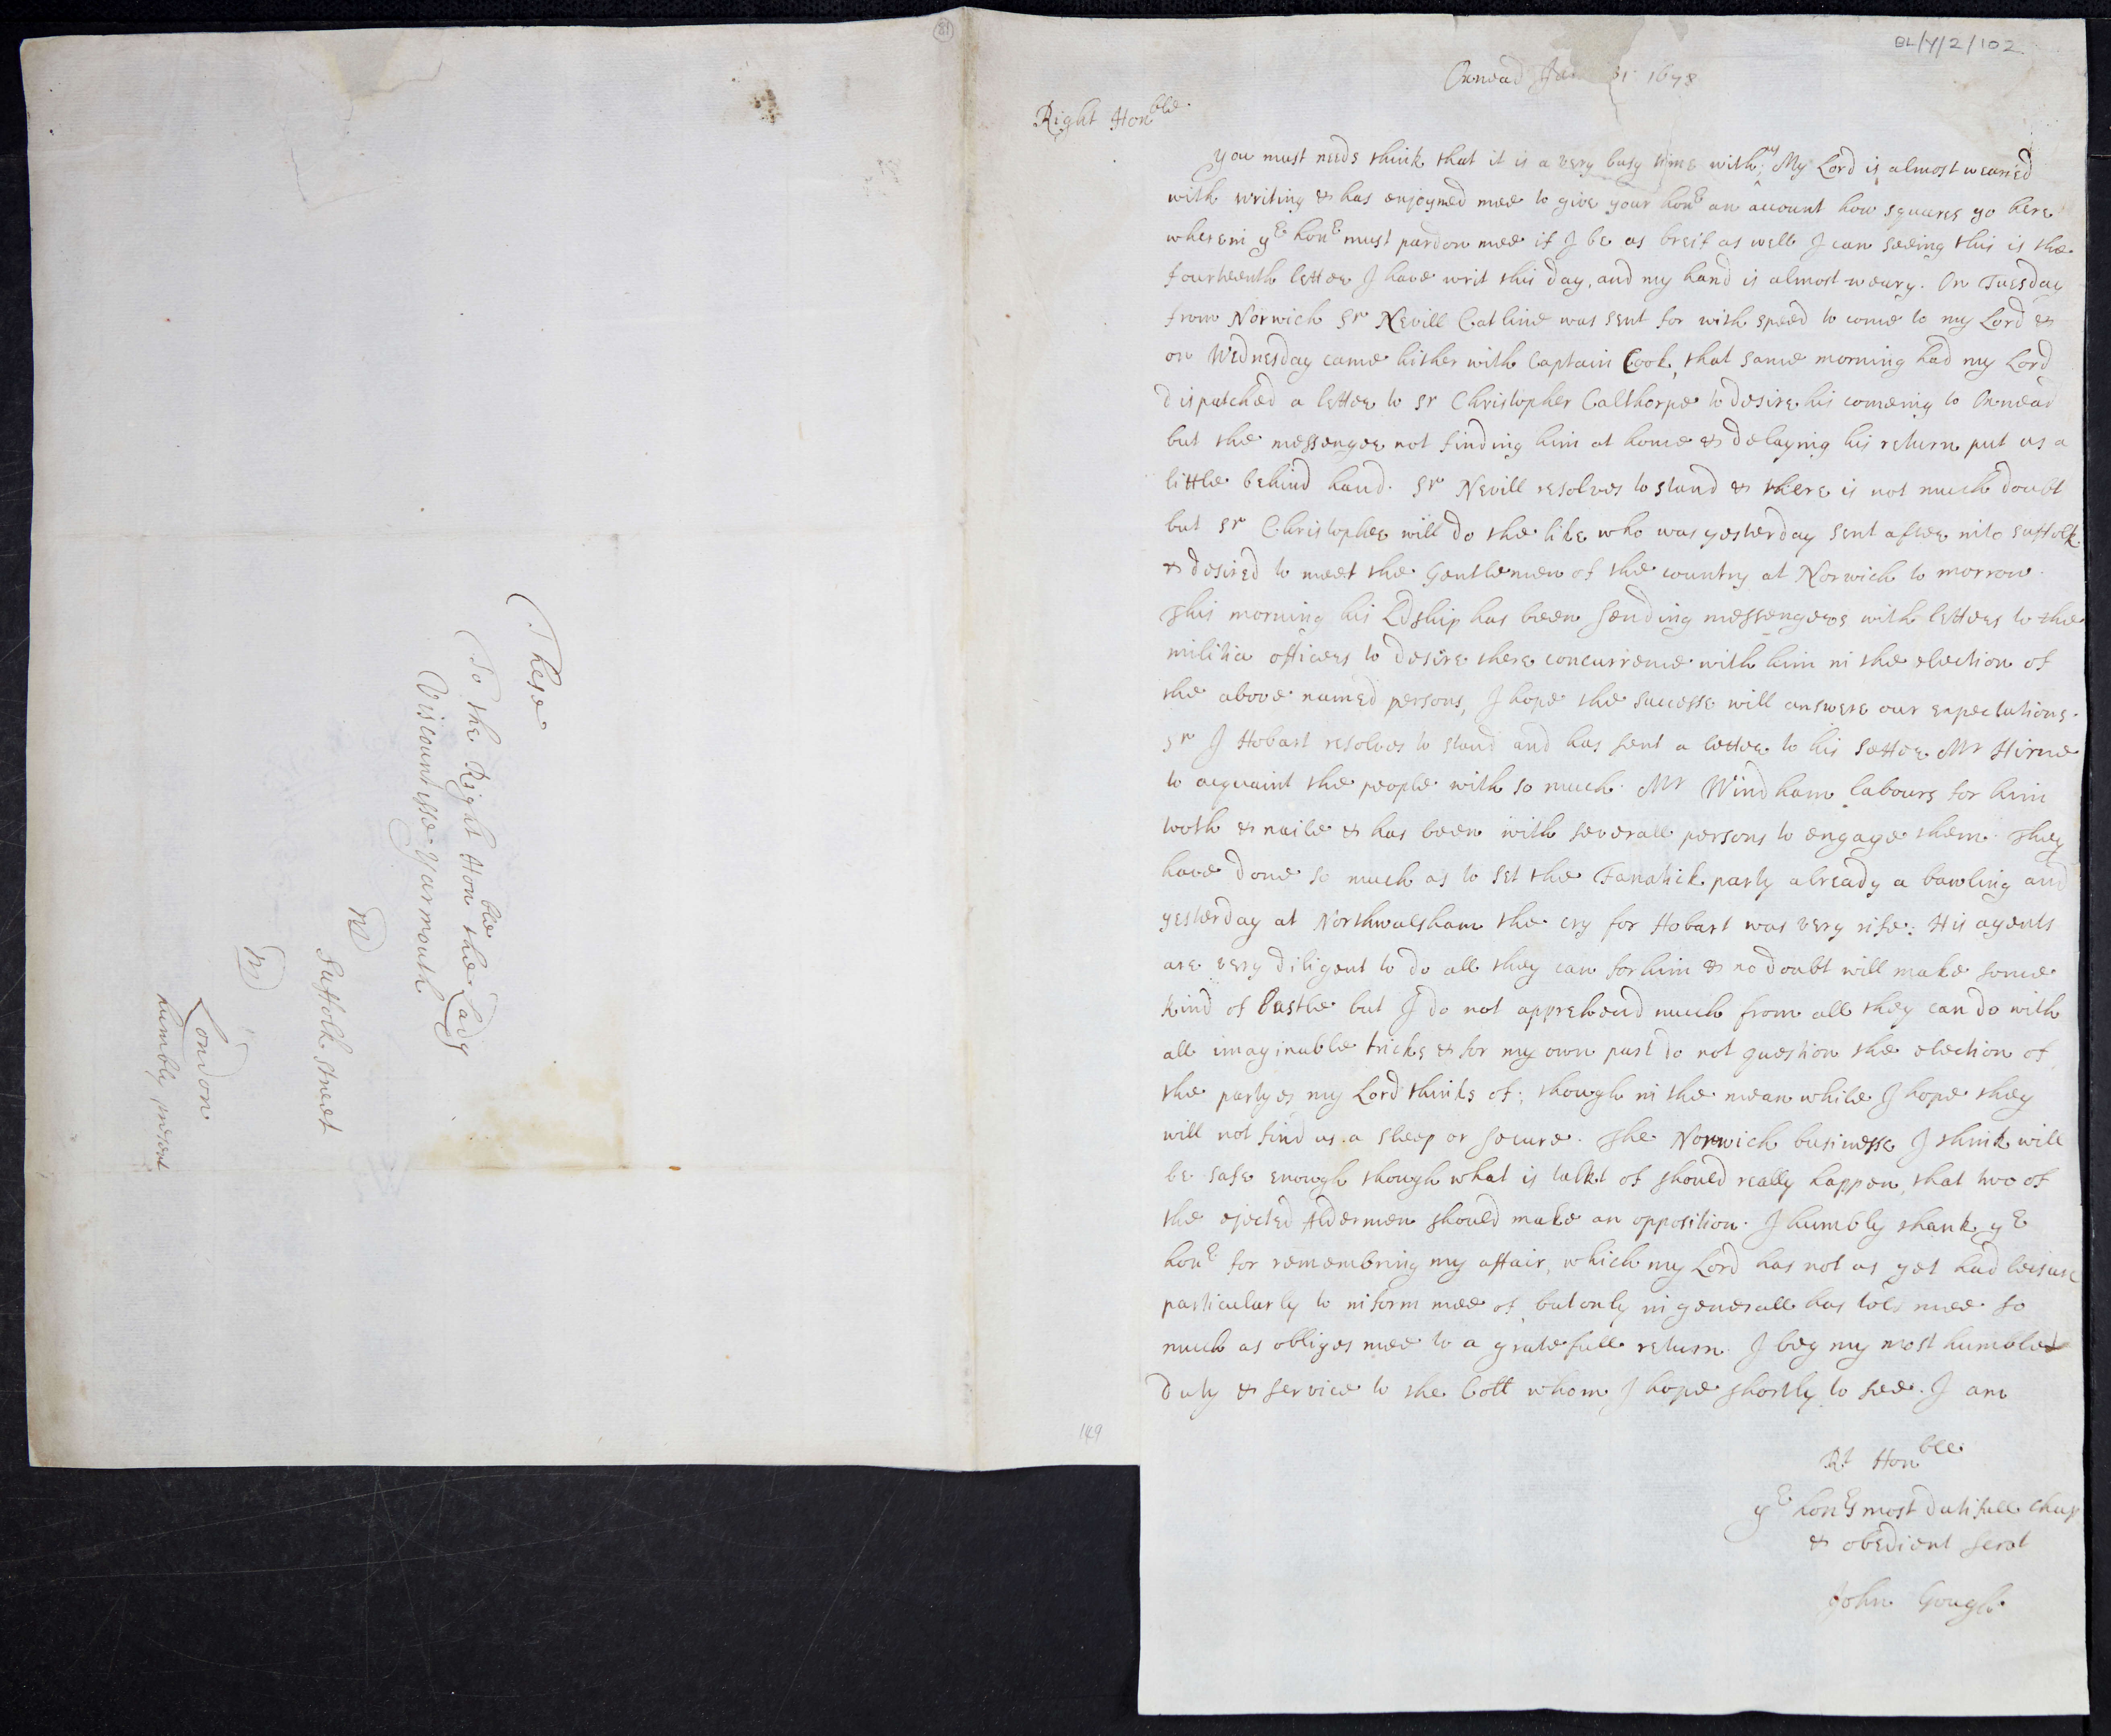 BL/Y/2/102
81
Oxnead Jan 31 1678
Right Honble
you must needs think that it is a very busy time with us My Lord is almost wearied
with writing & has enjoyned mee to give your honr an account how squares go here
wherein yr honr must pardon mee if I be as breif as well I can seeing this is the
fourteenth letter I have writ this day, and my hand is almost weary. On Tuesday
from Norwich Sr Nevill Catline was sent for with speed to come to my Lord &
on Wednesday came hither with Captain Cook, that same morning had my Lord
dispatched a letter to Sr Christopher Calthorpe to desire his comeing to Oxnead
but the messenger not finding him at home & delaying his return put us a
little behind hand. Sr Nevill resolves to stand & there is not much doubt
but Sr Christopher will do the like who was yesterday sent after into Suffolk
& desired to meet the Gentlemen of the country at Norwich to morrow.
This morning his Ldship has been sending messengers with letters to the
militia officers to desire there concurrence with him in the election of
the above named persons, I hope the successe will answere our expectations.
Sr J Hobart resolves to stand and has sent a letter to his Mr Hirne
to acquaint the people with so much. Mr Windham labours for him
tooth & naile & has been with severall persons to engage them. They
have done so much as to set the Fanatick party already a bawling and
yesterday at Northwalsham the cry for Hobart was very rife: His agents
are very diligent to do all they can for him & no doubt will make some
kind of bustle but I do not apprehend much from all they can do with
all imaginable tricks & for my own part do not question the election of
the partyes my Lord thinks of; though in the mean while I hope they
will not find us a sleep or secure. The Norwich businesse I think will
be safe enough though what is talkt of should really happen, that two of
the ejected Aldermen should make an opposition. I humbly thank yr
honr for remembring my affair, which my Lord has not as yet had leisure
particularly to inform mee of, but only in generall has told mee so
much as obliges mee to a gratefull return. I beg my most humble
duty & service to the Coll whom I hope shortly to see. I am
Rt Honble
yr honrs most dutifull Chap
& obedient servt
John Gough
149
These
To the Right Honble the Lady
Viscountesse Yarmouth
Suffolk Street
London
humbly present